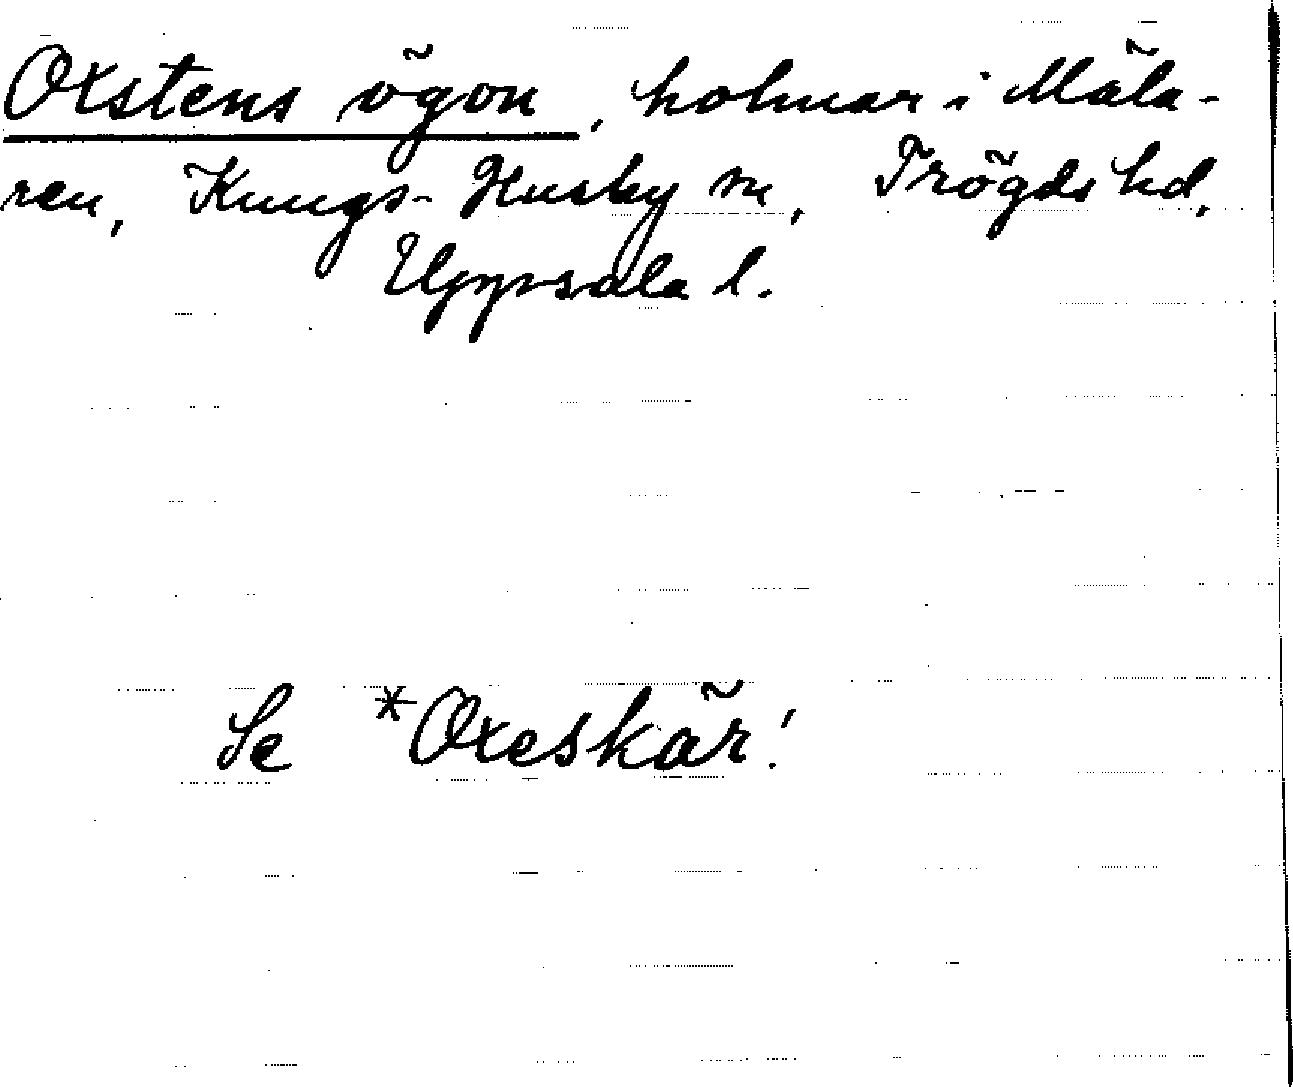 Oxstens ögon, holmar i Mäla-
ren, Kungs-Husby sn, Trögds hd,
Uppsala l.
Se *Oxeskär!